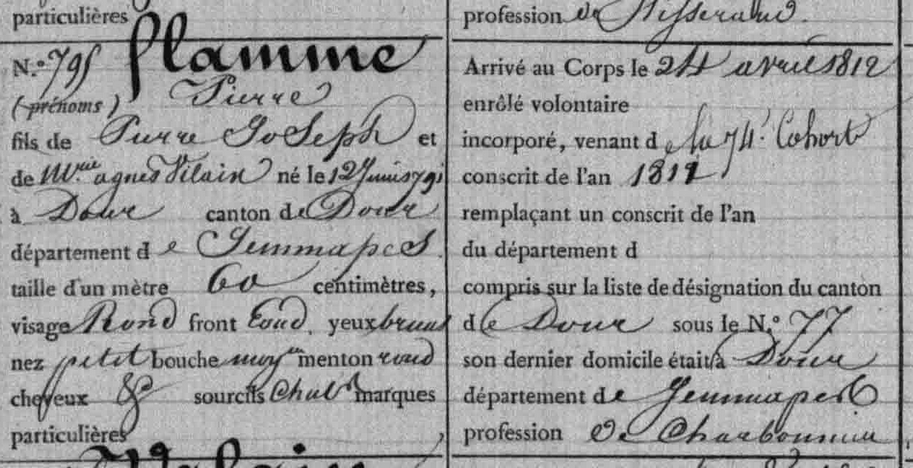 particulières
N.º 795 flamme
(prénoms) Pierre
fils de Pierre Joseph et
de Mie agnes Vilain né le 12 Juin 1791
à Dour canton de Dour
département de Jemmapes
taille d'un mètre 60 centimètres,
visage Rond front Rond, yeux bruns
nez petit bouche moyne menton rond
cheveux & sourcils Chat marques
particulières
profession de Tisserand.
Arrivé au Corps le 24 avril 1812
enrôlé volontaire
incorporé, venant de la 74e Cohort
conscrit de l'an 1812
remplaçant un conscrit de l'an
du département d
compris sur la liste de désignation du canton
de Dour sous le N.º 77
son dernier domicile était à Dour
département de Jemmapes
profession De Charbonnier